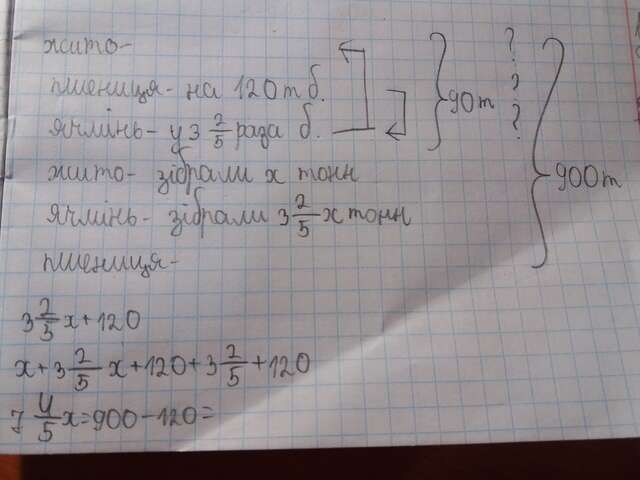 жито-
пшениця- на 120т б.
ячмінь- у 3 2/5 раза б.
90т
? ? ?
900т
жито- зібрали x тонн
ячмінь- зібрали 3 2/5 x тонн
пшениця-
3 2/5 x + 120
x + 3 2/5 x + 120 + 3 2/5 + 120
7 4/5 x = 900 - 120 =